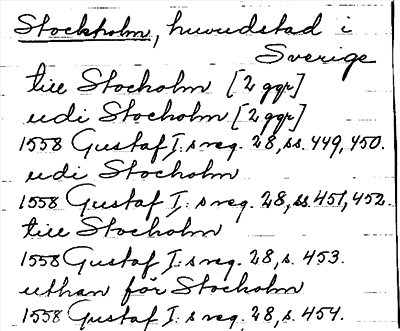 Stockholm, huvudstad i
Sverige
till Stocholm [2 ggr]
udi Stocholm [2 ggr]
1558 Gustaf I:s reg. 28, ss. 449, 450.
udi Stocholm
1558 Gustaf I:s reg. 28, ss. 451, 452.
till Stocholm
1558 Gustaf I:s reg. 28, s. 453.
uthan för Stocholm
1558 Gustaf I:s reg. 28, s. 454.